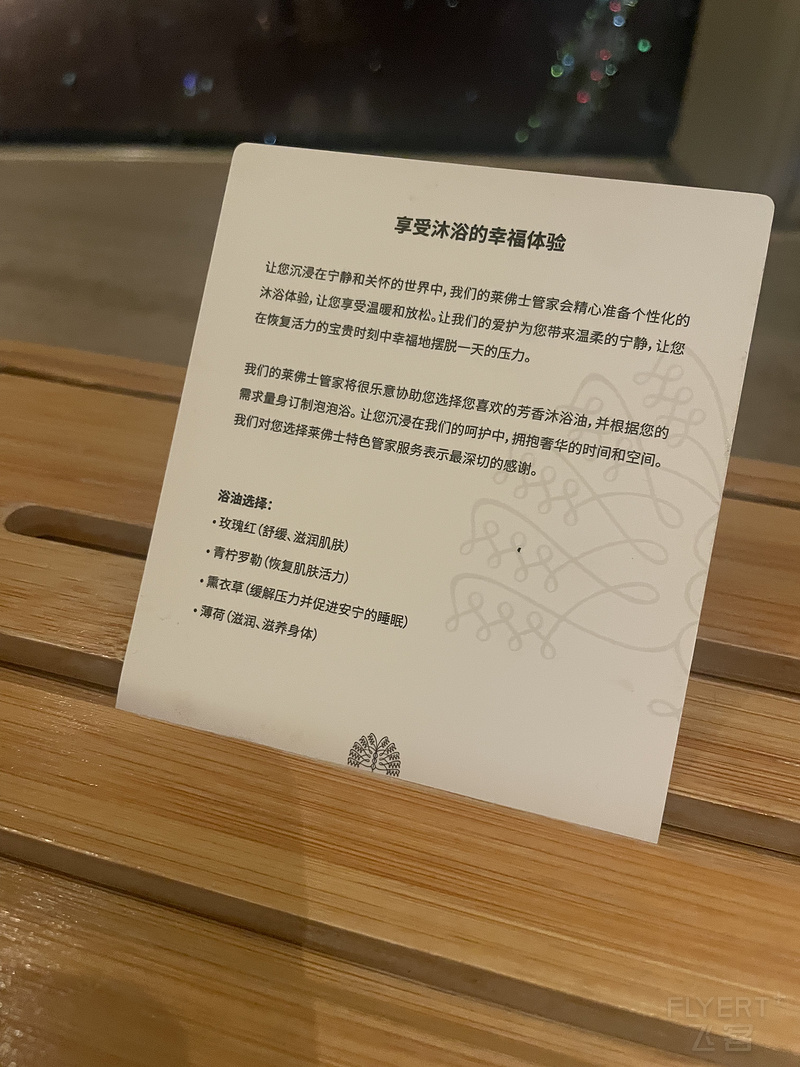 享受沐浴的幸福体验
让您沉浸在宁静和关怀的世界中，我们的莱佛士管家会精心准备个性化的
沐浴体验，让您享受温暖和放松。让我们的爱护为您带来温柔的宁静，让您
在恢复活力的宝贵时刻中幸福地摆脱一天的压力。
我们的莱佛士管家将很乐意协助您选择您喜欢的芳香沐浴油，并根据您的
需求量身订制泡泡浴。让您沉浸在我们的呵护中，拥抱奢华的时间和空间。
我们对您选择莱佛士特色管家服务表示最深切的感谢。
浴油选择：
• 玫瑰红（舒缓、滋润肌肤）
• 青柠罗勒（恢复肌肤活力）
• 薰衣草（缓解压力并促进安宁的睡眠）
• 薄荷（滋润、滋养身体）
FLYERT
飞客